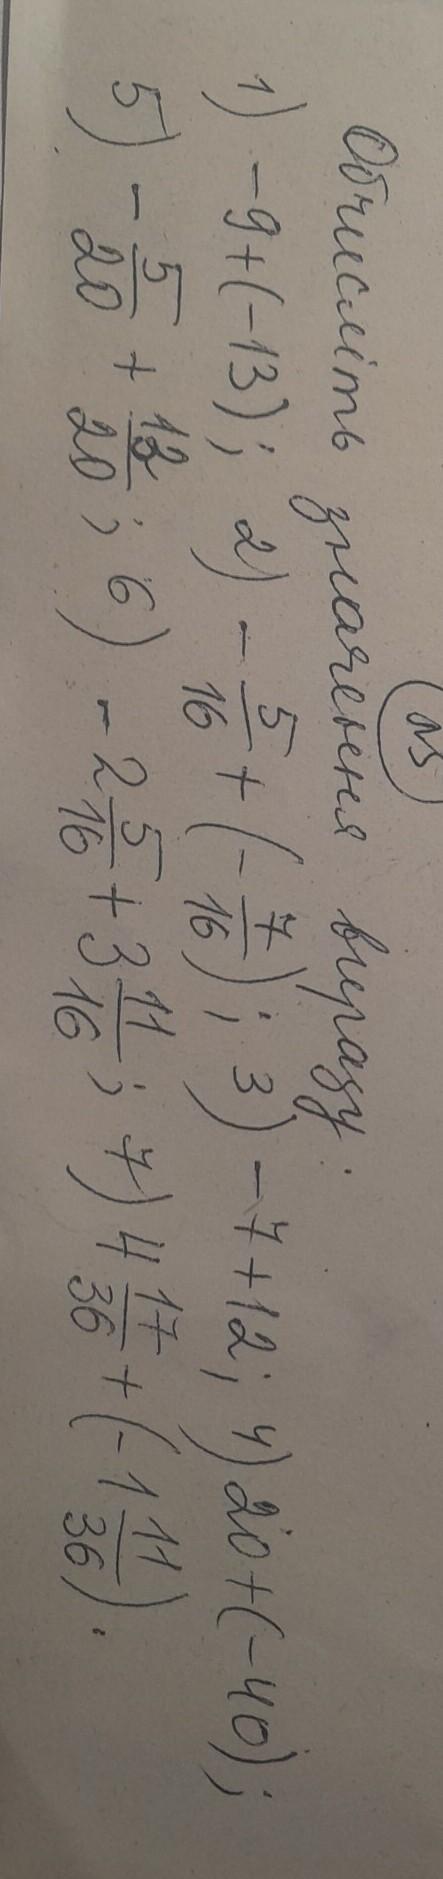 №3
Обчисліть значення виразу:
1) -9+(-13); 2) -5/16 + (-7/16); 3) -7+12; 4) 20+(-40);
5) -5/20 + 12/20; 6) -2 5/16 + 3 11/16; 7) 4 17/36 + (-1 11/36).